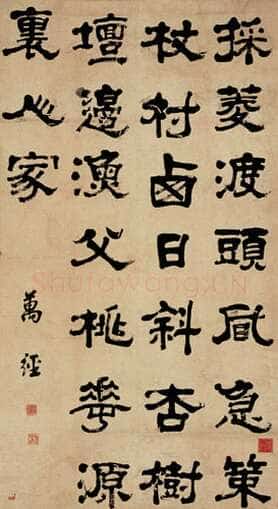 採菱渡頭風急策
杖村西日斜杏樹
壇邊漁父桃華源
裏人家
萬經
Shufawang.CN